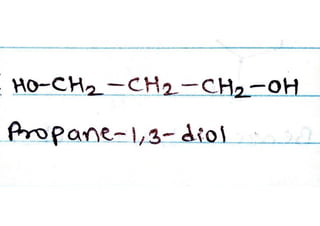 HO-CH₂-CH₂-CH₂-OH
Propane-1,3-diol